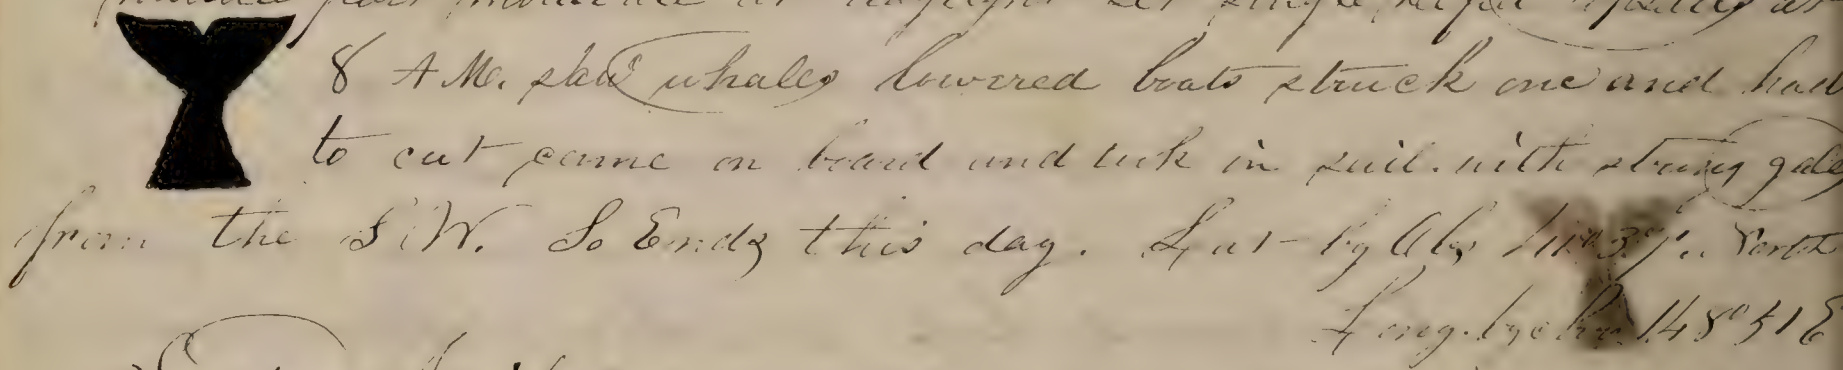 8 A M. saw whales lowered boats struck one and had
to cut came on board and took in sail. with strong gales
from the S W. So Ends this day. Lat by Obs North
Long. by chro 148° 51 E